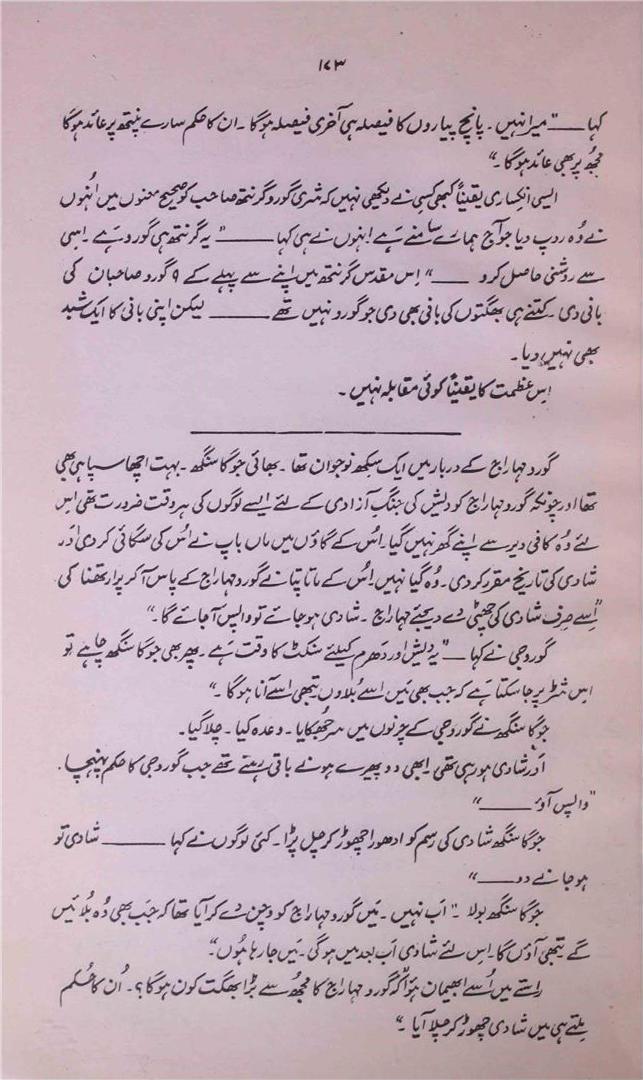 ۱۷۳
کہا ــــ "میرا نہیں ۔ پانچ پیاروں کا فیصلہ ہی آخری فیصلہ ہوگا ۔ ان کا حکم سارے پنتھ پر عائد ہوگا
مجھ پر بھی عائد ہوگا ۔"
ایسی انکساری یقیناً کبھی کسی نے دیکھی نہیں کہ شری گورو گرنتھ صاحب کو صحیح معنوں میں اُنہوں
نے وُہ روپ دیا جو آج ہمارے سامنے ہے انہوں نے ہی کہا ــــــ "یہ گرنتھ ہی گورو ہے ۔ اِسی
سے روشنی حاصل کرو ــــ" اِس مقدس گرنتھ میں اپنے سے پہلے کے ۹ گورو صاحبان کی
بانی دی ۔ کتنے ہی بھگتوں کی بانی بھی دی جو گورو نہیں تھے ــــــ لیکن اپنی بانی کا ایک شبد
بھی نہیں دیا ۔
اِس عظمت کا یقیناً کوئی مقابلہ نہیں ۔
گورو مہاراج کے دربار میں ایک سِکھ نوجوان تھا ۔ بھائی جوگا سنگھ ۔ بہت اچھا سپاہی بھی
تھا اور چونکہ گورو مہاراج کو دیش کی جنگِ آزادی کے لئے ایسے لوگوں کی ہر وقت ضرورت تھی اِس
لئے وُہ کافی دیر سے اپنے گھر نہیں گیا ۔ اُس کے گاؤں میں ماں باپ نے اُس کی سگائی کر دی اَور
شادی کی تاریخ مقرر کر دی ۔ وُہ گیا نہیں ۔ اُس کے ماتا پتا نے گورو مہاراج کے پاس آ کر پرارتھنا کی
"اِسے صِرف شادی کی چھٹی دے دیجئے مہاراج ۔ شادی ہو جائے تو واپس آ جائے گا ۔"
گورو جی نے کہا ــــ "یہ دیش اور دھرم کیلئے سنکٹ کا وقت ہے ۔ پھر بھی جوگا سنگھ چاہے تو
اس شرط پر جا سکتا ہے کہ جب بھی میں اِسے بُلاوں تبھی اسے آنا ہوگا ۔"
جوگا سنگھ نے گورو جی کے چرنوں میں سر جُھکایا ۔ وعدہ کیا ۔ چلا گیا ۔
اَور شادی ہو رہی تھی ۔ ابھی دو پھیرے ہونے باقی رہتے تھے جب گورو جی کا حکم پہنچا ۔
"واپس آؤ ــــــ"
جوگا سنگھ شادی کی رسم کو ادھورا چھوڑ کر چل پڑا ۔ کئی لوگوں نے کہا ــــــ شادی تو
ہو جانے دو ــــ"
جوگا سنگھ بولا ۔" اَب نہیں ۔ میں گورو مہاراج کو وَچن دے کر آیا تھا کہ جَب بھی وُہ بُلائیں
گے تبھی آؤں گا ۔ اِس لئے شادی اَب بعد میں ہو گی ۔ میں جا رہا ہُوں ۔"
راستے میں اُسے ابھیمان ہؤا کہ گورو مہاراج کا مُجھ سے بڑا بھگت کون ہوگا ؟ ۔ اُن کا حُکم
مِلتے ہی میں شادی چھوڑ کر چلا آیا ۔"